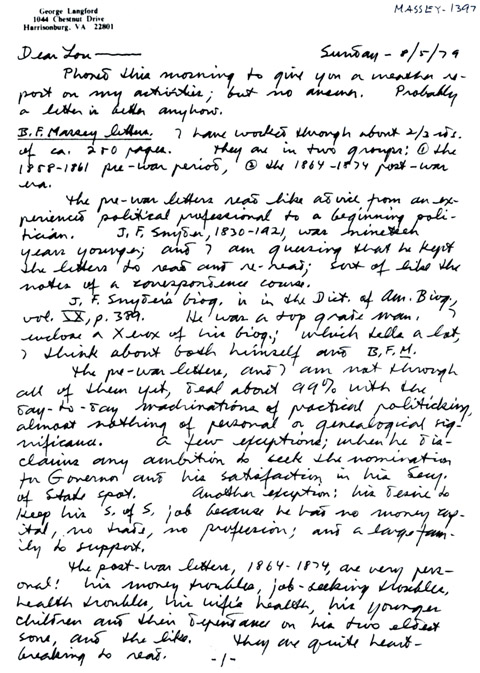 MASSEY-1397
George Langford
1044 Chestnut Drive
Harrisonburg, VA 22801
Dear Lou — Sunday - 8/5/79
Phoned this morning to give you a weather re-
port on my activities; but no answer. Probably
a letter is better anyhow.
B.F. Massey letters. I have worked through about 2/3rds.
of ca. 250 pages. They are in two groups; ① the
1858-1861 pre-war period, ② the 1864-1874 post-war
era.
The pre-war letters read like advice from an ex-
perienced political professional to a beginning poli-
tician. J.F. Snyder, 1830-1921, was nineteen
years younger; and I am guessing that he kept
the letters to read and re-read; sort of like the
notes of a correspondence course.
J.F. Snyder's biog. is in the Dict. of Am. Biog.,
vol. IX, p. 389. He was a top grade man. I
enclose a Xerox of his biog.; which tells a lot,
I think about both himself and B.F.M.
The pre-war letters, and I am not through
all of them yet, deal about 99% with the
day-to-day machinations of practical politicking,
almost nothing of personal or genealogical sig-
nificance. A few exceptions; when he dis-
claims any ambition to seek the nomination
for Governor and his satisfaction in his Secy.
of State spot. Another exception: his desire to
keep his S. of S. job because he had no money cap-
ital, no trade, no profession; and a large fam-
ily to support.
The post-war letters, 1864-1874, are very pers-
onal! his money troubles, job-seeking troubles,
health troubles, his wife's health, his younger
children and their dependance on his two eldest
sons, and the like. They are quite heart-
breaking to read.
-1-